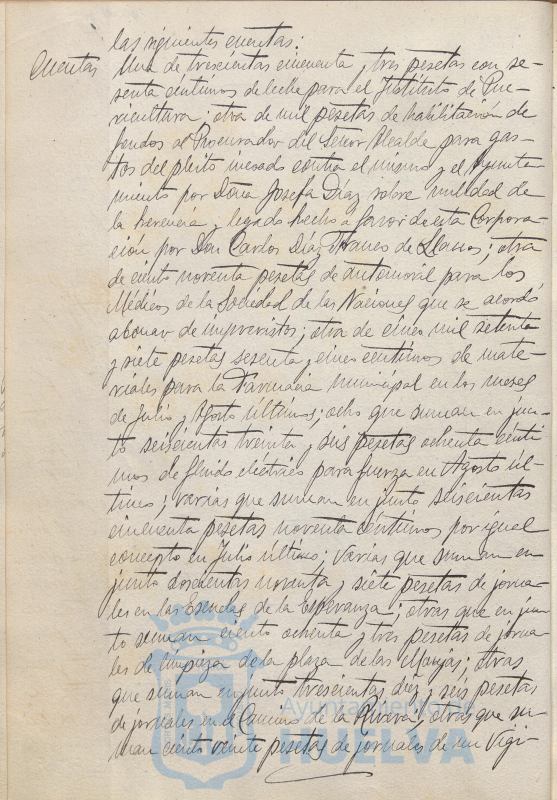 las siguientes cuentas:
Cuentas Una de trescientas cincuenta y tres pesetas con se-
senta céntimos de leche para el Instituto de Pue-
ricultura; otra de mil pesetas de habilitación de
fondos al Procurador del Señor Alcalde para gas-
tos del pleito incoado contra el mismo y el Ayunta-
miento por Doña Josefa Díaz sobre nulidad de
la herencia y legado hecho a favor de esta Corpora-
ción por Don Carlos Díaz Franco de Llanos; otra
de ciento noventa pesetas de automovil para los
Médicos de la Sociedad de las Naciones que se acordó
abonar de imprevistos; otra de cinco mil setenta
y siete pesetas sesenta y cinco centimos de mate-
riales para la Farmacia Municipal en los meses
de Julio y Agosto últimos; ocho que suman en jun-
to seiscientas treinta y seis pesetas ochenta cénti-
mos de fluido eléctrico para fuerza en Agosto úl-
timo; varias que suman en junto seiscientas
cincuenta pesetas noventa céntimos por igual
concepto en Julio último; varias que suman en
junto doscientas noventa y siete pesetas de jorna-
les en las Escuelas de la Esperanza; otras que en jun-
to suman ciento ochenta y tres pesetas de jorna-
les de limpieza de la plaza de las Monjas; otras
que suman en junto trescientas diez y seis pesetas
de jornales en el Camino de la Rivera; otras que su-
man ciento veinte pesetas de jornales de un Vigi-
Ayuntamiento de
HUELVA